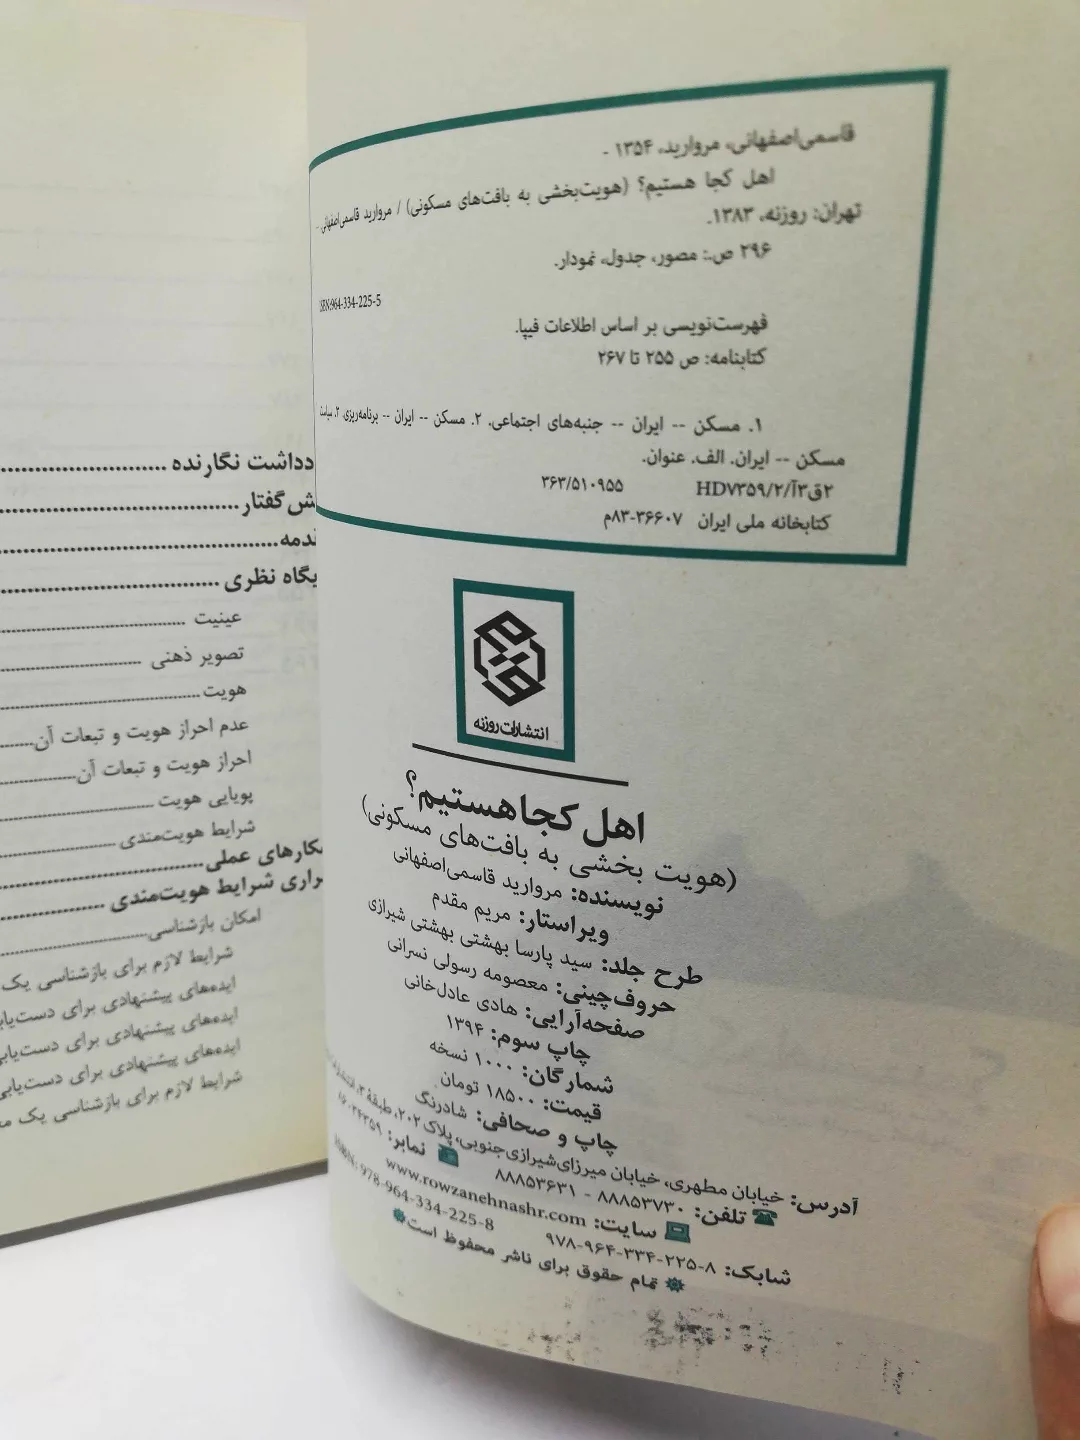 قاسمی‌اصفهانی، مروارید، ۱۳۵۴ -
اهل کجا هستیم؟ (هویت‌بخشی به بافت‌های مسکونی) / مروارید قاسمی‌اصفهانی. --
تهران: روزنه، ۱۳۸۳.
۲۹۶ ص.: مصور، جدول، نمودار.
ISBN:964-334-225-5
فهرست‌نویسی بر اساس اطلاعات فیپا.
کتابنامه: ص ۲۵۵ تا ۲۶۷
۱. مسکن -- ایران -- جنبه‌های اجتماعی. ۲. مسکن -- ایران -- برنامه‌ریزی. ۲. سیاست
مسکن -- ایران. الف. عنوان.
۲ق۳آ/۲/HD۷۳۵۹ ۳۶۳/۵۱۰۹۵۵
کتابخانه ملی ایران ۳۶۶۰۷-۸۳م
انتشارات روزنه
اهل کجا هستیم؟
(هویت بخشی به بافت‌های مسکونی)
نویسنده: مروارید قاسمی‌اصفهانی
ویراستار: مریم مقدم
طرح جلد: سید پارسا بهشتی بهشتی شیرازی
حروف‌چینی: معصومه رسولی نسرانی
صفحه‌آرایی: هادی عادل‌خانی
چاپ سوم: ۱۳۹۴
شمارگان: ۱۰۰۰ نسخه
قیمت: ۱۸۵۰۰ تومان
چاپ و صحافی: شادرنگ
آدرس: خیابان مطهری، خیابان میرزای‌شیرازی‌جنوبی، پلاک ۲۰۲، طبقهٔ ۳، انتشارات
تلفن: ۸۸۸۵۳۷۳۰ - ۸۸۸۵۳۶۳۱ نمابر: ۸۶۰۳۴۳۵۹
سایت: www.rowzanehnashr.com
شابک: ۸-۲۲۵-۳۳۴-۹۶۴-۹۷۸ ISBN: 978-964-334-225-8
تمام حقوق برای ناشر محفوظ است
دداشت نگارنده
ش‌گفتار
دمه
یگاه نظری
عینیت
تصویر ذهنی
هویت
عدم احراز هویت و تبعات آن
احراز هویت و تبعات آن
پویایی هویت
شرایط هویت‌مندی
کارهای عملی
راری شرایط هویت‌مندی
امکان بازشناسی
شرایط لازم برای بازشناسی یک
ایده‌های پیشنهادی برای دست‌یاب
ایده‌های پیشنهادی برای دست‌یابی
ایده‌های پیشنهادی برای دست‌یابی
شرایط لازم برای بازشناسی یک مح